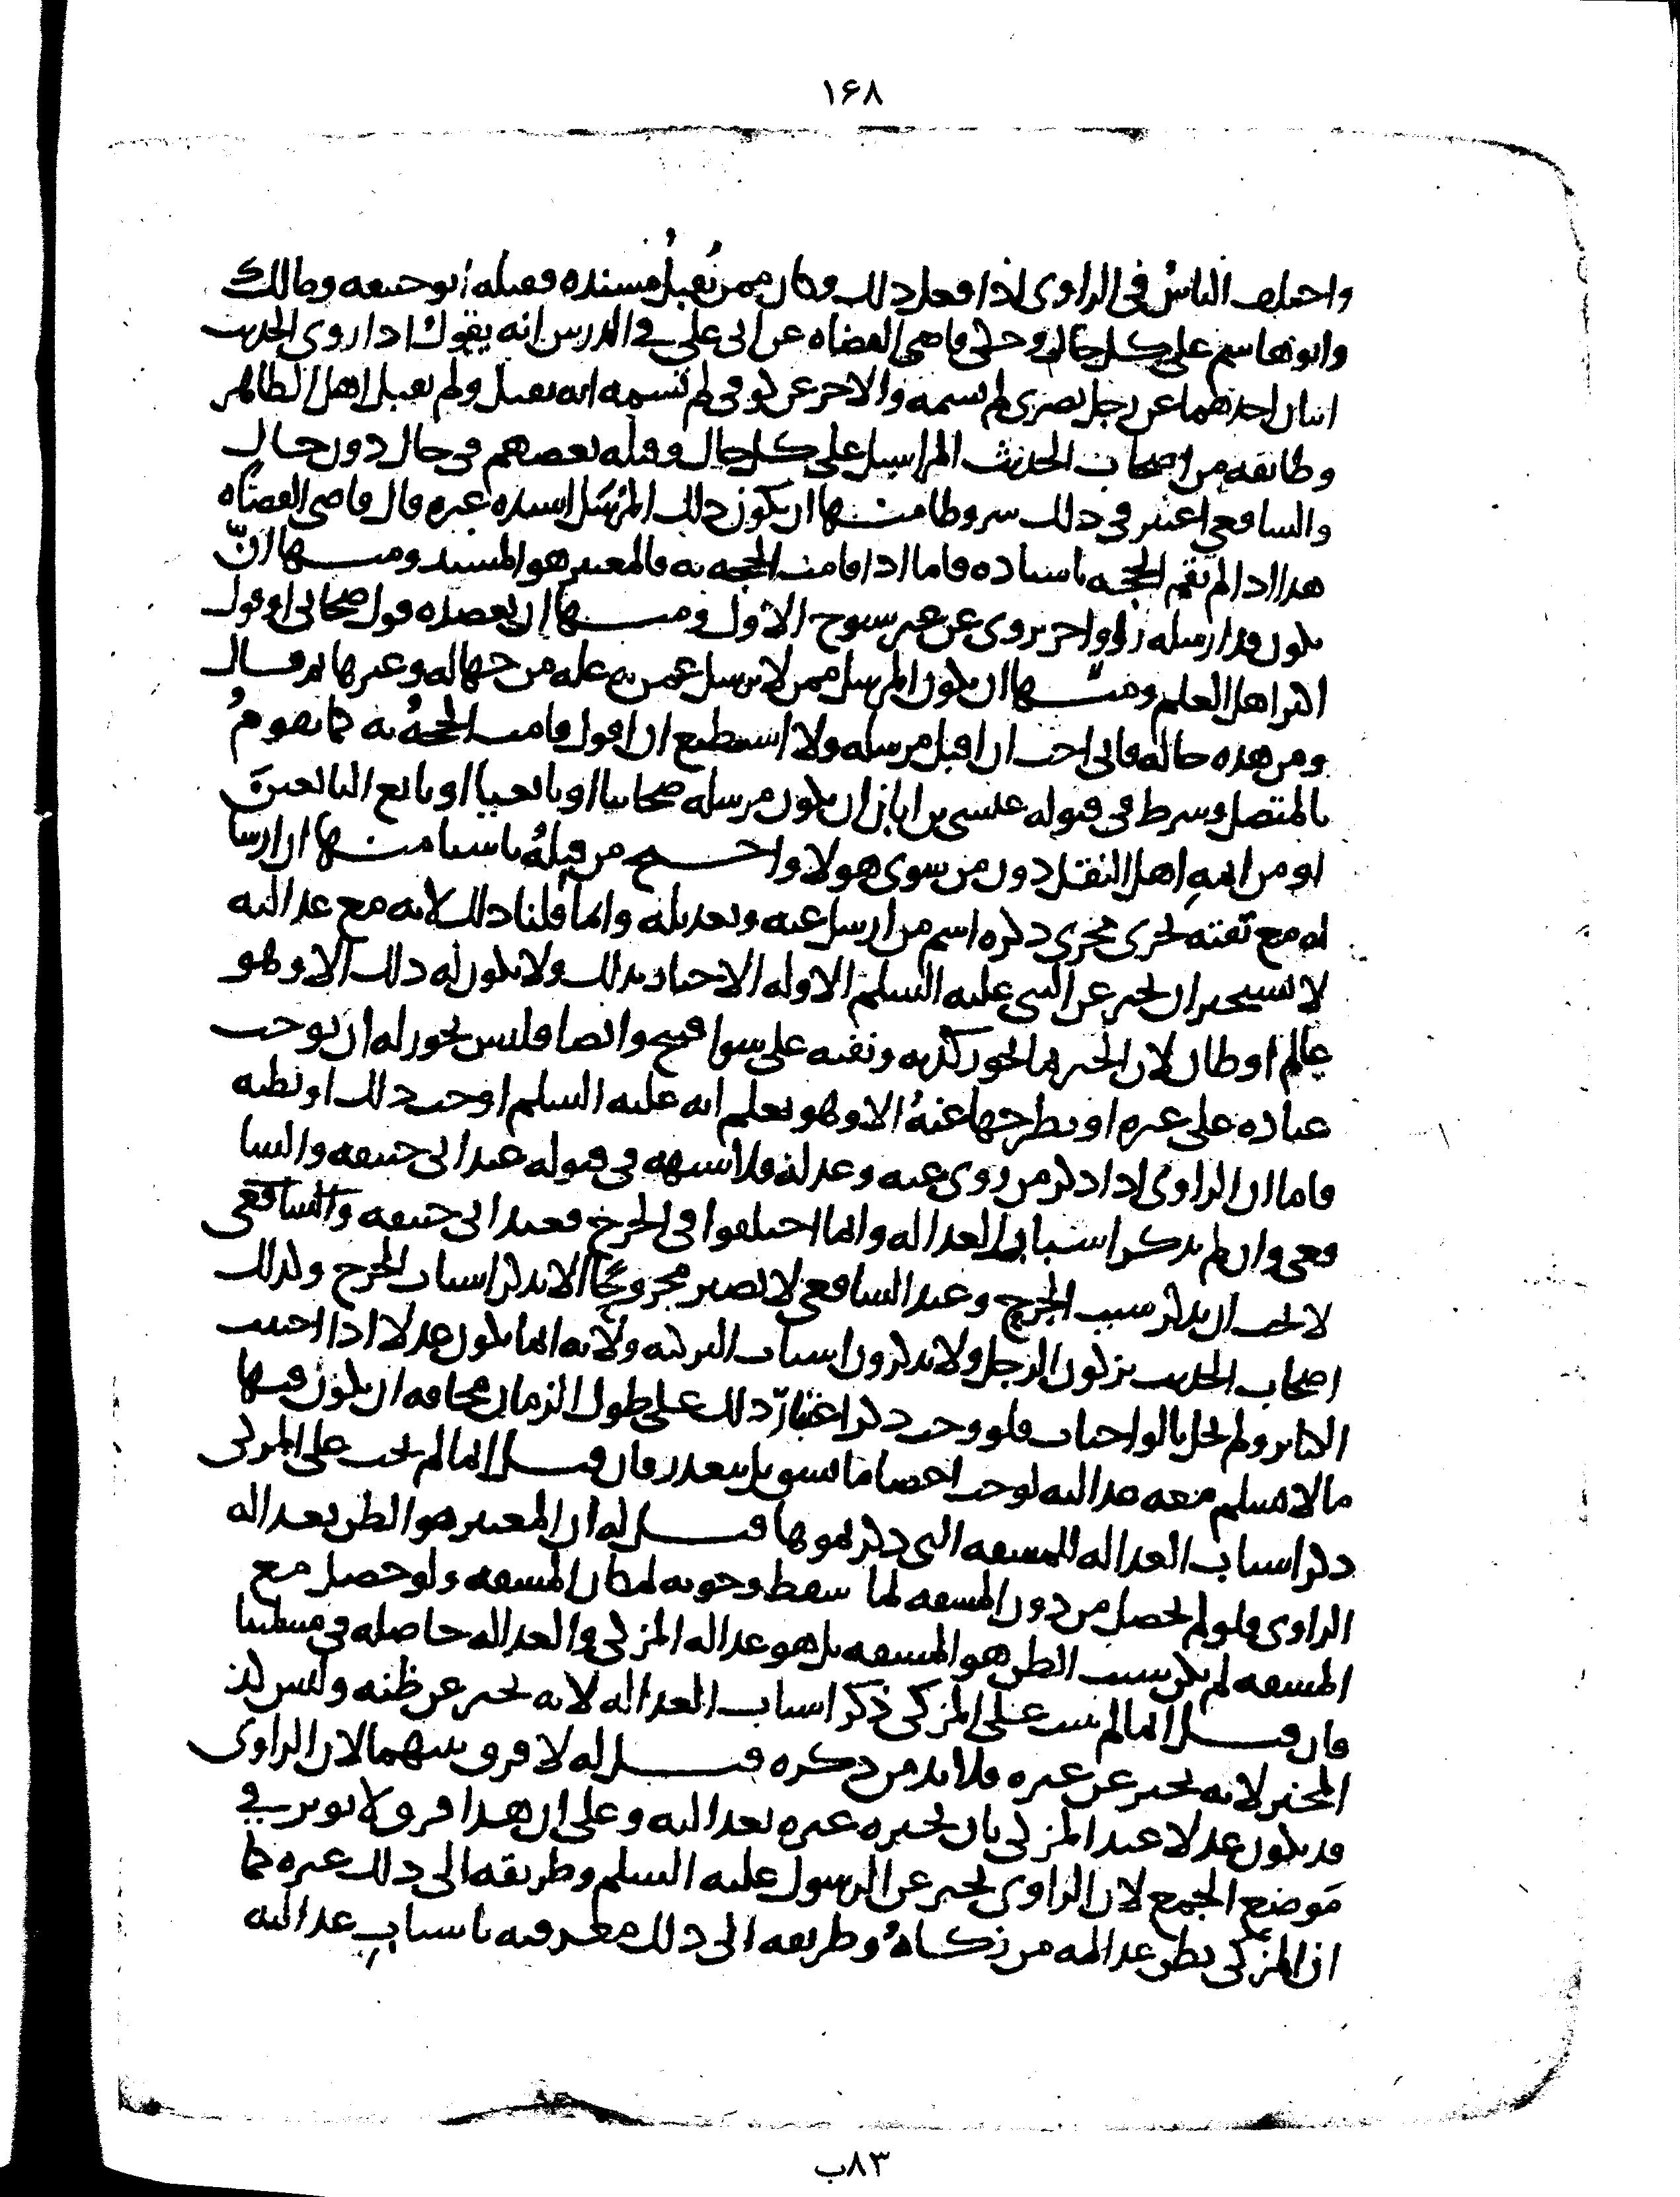 ١۶٨
واختلف الناس في الراوي اذا فعل ذلك وكان ممن تقبل مسنده فقبله ابو حنيفه ومالك
وابو هاشم على كل حال وحكى قاضي القضاه عن ابي علي في الدرس انه يقول اذا روى الحديث
اثنان احدهما عن رجل بصري لم يسمه والاخر عن كوفي لم يسمه انه يقبل ولم يقبل اهل الظاهر
وطائفه من اصحاب الحديث المراسيل على كل حال وقبله بعضهم في حال دون حال
والشافعي اعتبر في ذلك شروطا منها ان يكون ذلك المرسل اسنده غيره قال قاضي القضاه
هذا اذا لم تقم الحجه باسناده فاما اذا قامت الحجه به فالمعتبر هو المسند ومنها انّ
يكون قد ارسله راو اخر يروي عن غير شيوخ الاول ومنها ان يعضده قول صحابي او قول
اكثر اهل العلم ومنها ان يكون المرسل ممن لا يرسل عمن فيه عله من جهاله وغيرها ثم قال
ومن هذه حاله فاني احب ان اقبل مرسله ولا استطيع ان اقول قامت الحجهُ به كما تقومُ
بالمتصل وشرط في قبوله عيسى بن ابان ان يكون مرسله صحابيا او تابعيا او تابع التابعين
او من ايمهِ اهل النقل دون من سوى هولا واحتج من قبلهُ باشيا منها ان ارسا
له مع ثقته يجري مجرى ذكره اسم من ارسل عنه وتعديله وانما قلنا ذلك لانه مع عدالته
لا يستجيز ان يخبر عن النبي عليه السلم الا وله الاخبار بذلك ولا يكون له ذلك الا وهو
عالم او ظان لان الخبر بما يجوز كذبه ونفيه على سوا قبيح وايضا فليس يجوز له ان يوجب
عباده على غيره او يطرحها عنهُ الا وهو يعلم انه عليه السلم اوجب ذلك او يظنه
فاما ان الراوي اذا ذكر من روى عنه وعدله فلا شبهه في قبوله عند ابي حنيفه والشا
فعي وان لم يذكر اسباب العداله وانما اختلفوا في الجرح فعند ابي حنيفه والشافعي
لا يجب ان يذكر سبب الجرح وعند الشافعي لا يصير مجروحًا الا بذكر اسباب الجرح وكذلك
اصحاب الحديث يزكون الرجل ولا يذكرون اسباب التزكيه ولانه انما يكون عدلا اذا اجتنب
الكباير ولم يخل بالواجبات فلو وجب ذكر اعتبار ذلك على طول الزمان مخافه ان يكون فيها
ما لا تسلم معه عدالته لوجب احصا ما تسويل يتعذر فان قيل انما لم يجب على المزكي
ذكر اسباب العداله للمشقه التي ذكرتموها قيل له ان المعتبر هو الظن بعداله
الراوي فلو لم يحصل من دون المشقه لما سقط وجوبه لمكان المشقه ولو حصل مع
المشقه لم يكن سبب الظن هو المشقه بل هو عداله المزكي والعداله حاصله في مسلتنا
فان قيل انما لم يجب على المزكي ذكر اسباب العداله لانه يخبر عن ظنه وليس كذ
المخبر لانه يخبر عن غيره فلا بد من ذكره قيل له لا فرق بينهما لان الراوي
قد يكون عدلا عند المزكي بان يخبره غيره بعدالته وعلى ان هذا فرق لا يوثر في
مَوضع الجمع لان الراوي يخبر عن الرسول عليه السلم وطريقه الى ذلك غيره كما
ان المزكي يظن عداله من زكاهُ وطريقه الى ذلك معرفته باسبابِ عدالته
٨٣ب